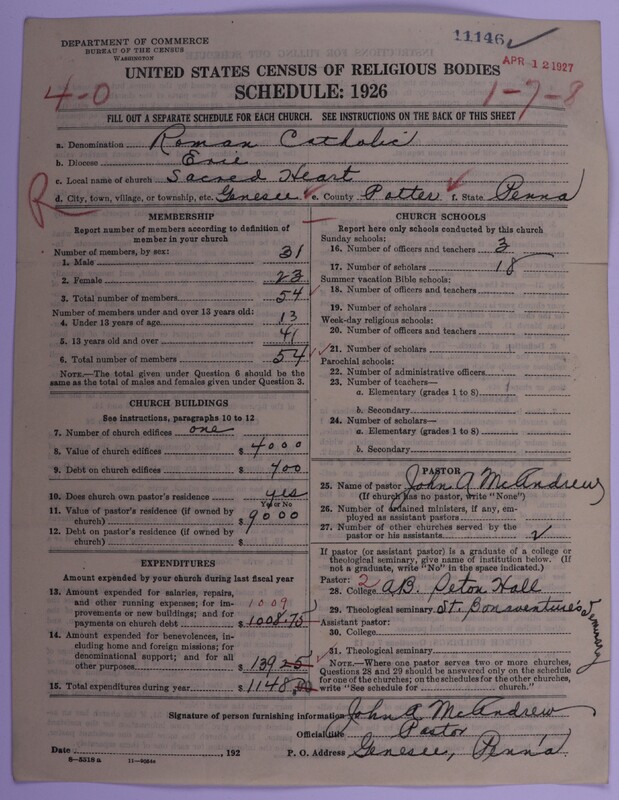 DEPARTMENT OF COMMERCE
BUREAU OF THE CENSUS
WASHINGTON
11146
APR 12 1927
UNITED STATES CENSUS OF RELIGIOUS BODIES
SCHEDULE: 1926
4-0
1-7-8
FILL OUT A SEPARATE SCHEDULE FOR EACH CHURCH. SEE INSTRUCTIONS ON THE BACK OF THIS SHEET
a. Denomination Roman Catholic
b. Diocese Erie
c. Local name of church Sacred Heart
R d. City, town, village, or township, etc. Genesee e. County Potter f. State Penna
MEMBERSHIP
Report number of members according to definition of
member in your church
Number of members, by sex:
1. Male 31
2. Female 23
3. Total number of members 54
Number of members under and over 13 years old:
4. Under 13 years of age 13
5. 13 years old and over 41
6. Total number of members 54
NOTE.—The total given under Question 6 should be
same as the total of males and females given under Question 3.
CHURCH BUILDINGS
See instructions, paragraphs 10 to 12
7. Number of church edifices one
8. Value of church edifices $ 4000
9. Debt on church edifices $ 400
10. Does church own pastor's residence yes
Yes or No
11. Value of pastor's residence (if owned by
church) $ 9000
12. Debt on pastor's residence (if owned by
church) $
EXPENDITURES
Amount expended by your church during last fiscal year
13. Amount expended for salaries, repairs,
and other running expenses; for im-
provements or new buildings; and for
payments on church debt 1009 $ 1008.75
14. Amount expended for benevolences,
including home and foreign missions; for
denominational support; and for all
other purposes 139 25
15. Total expenditures during year $ 1148.00
CHURCH SCHOOLS
Report here only schools conducted by this church
Sunday schools:
16. Number of officers and teachers 3
17. Number of scholars 18
Summer vacation Bible schools:
18. Number of officers and teachers
19. Number of scholars
Week-day religious schools:
20. Number of officers and teachers
21. Number of scholars
Parochial schools:
22. Number of administrative officers
23. Number of teachers—
a. Elementary (grades 1 to 8)
b. Secondary
24. Number of scholars—
a. Elementary (grades 1 to 8)
b. Secondary
PASTOR
25. Name of pastor John A McAndrew
(If church has no pastor, write "None")
26. Number of ordained ministers, if any, em-
ployed as assistant pastors
27. Number of other churches served by the
pastor or his assistants 2
If pastor (or assistant pastor) is a graduate of a college or
theological seminary, give name of institution below. (If
not a graduate, write "No" in the space indicated.)
Pastor: 2
28. College A.B. Seton Hall
29. Theological seminary St. Bonaventure's Seminary
Assistant pastor:
30. College
31. Theological seminary
NOTE.—Where one pastor serves two or more churches,
Questions 28 and 29 should be answered only on the schedule
for one of the churches; on the schedules for the other churches,
write "See schedule for church."
Signature of person furnishing information John A McAndrew
Official title Pastor
Date , 192 P. O. Address Genesee, Penn'a.
8—5518 a 11—9064a